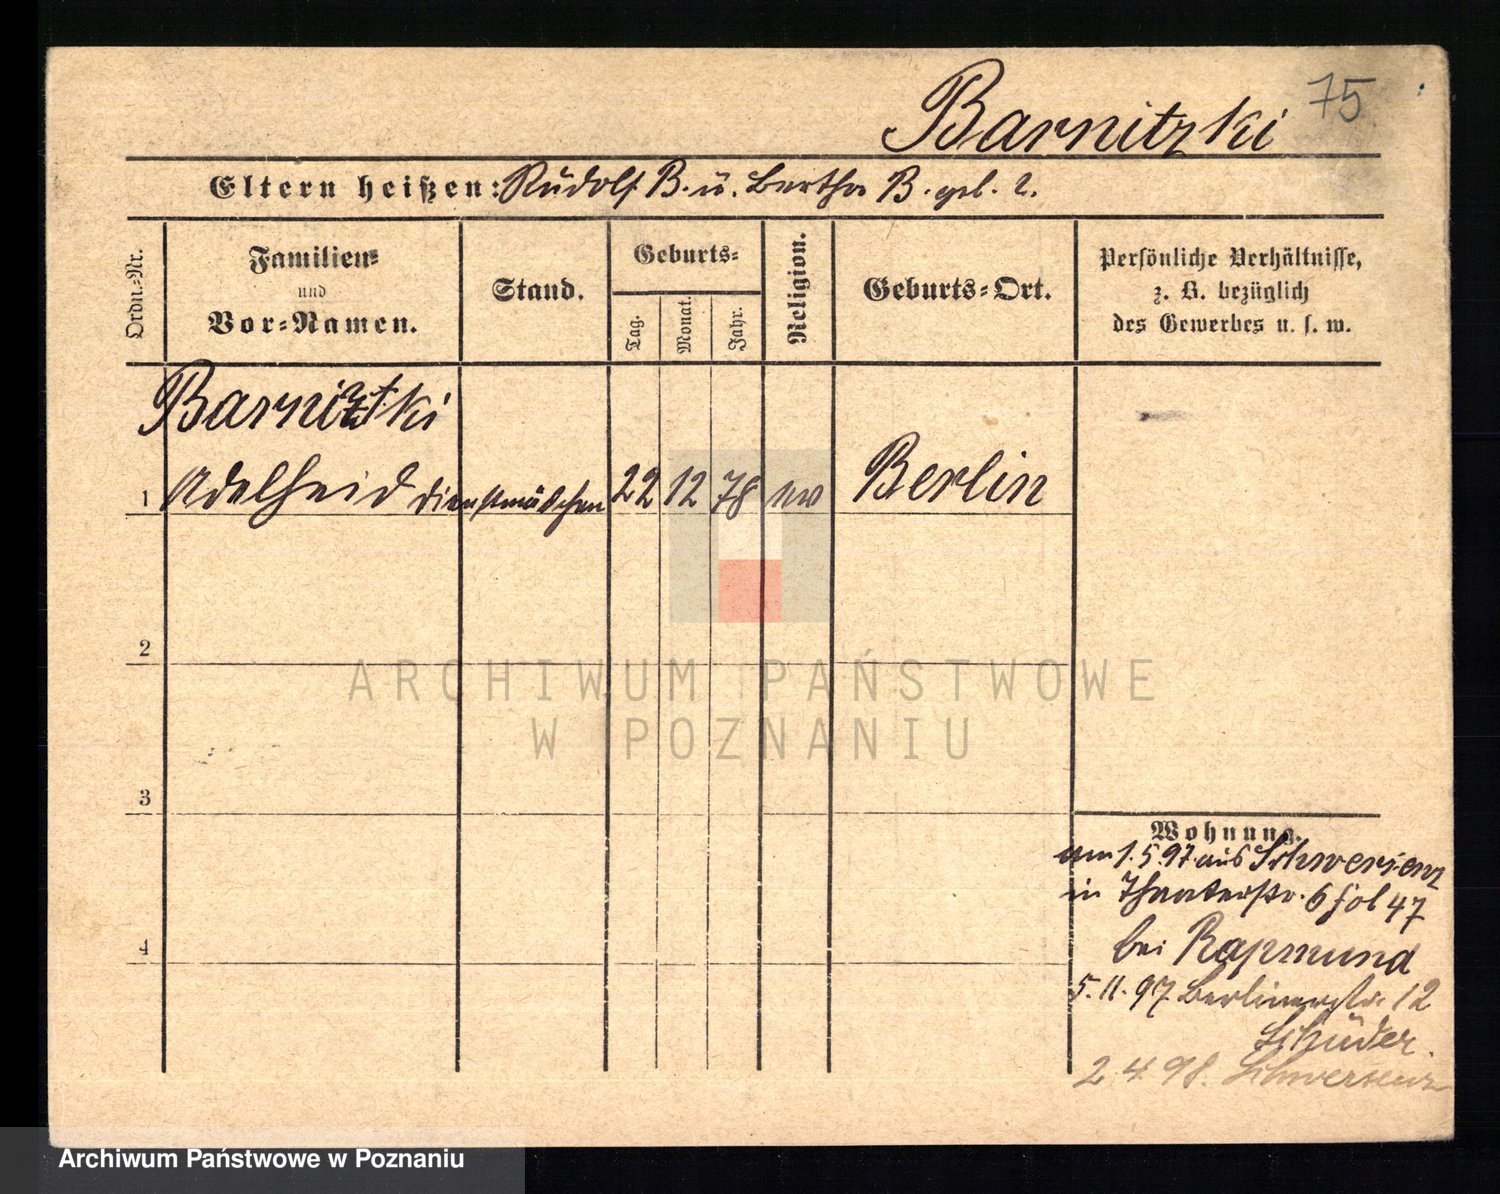 Barnitzki 75
Eltern heißen: Rudolf B. u. Bertha B. geb. ?.
Ordn.-Nr.
Familien-
und
Vor-Namen.
Stand.
Geburts-
Tag.
Monat.
Jahr.
Religion.
Geburts-Ort.
Persönliche Verhältnisse,
z. B. bezüglich
des Gewerbes u. s. w.
Barnitzki
1 Adelheid Dienstmädchen 22 12 78 ev Berlin
2
3
4
Wohnung.
am 1.5.97 aus Schwersenz
in Theaterstr. 6 fol 47
bei Rapmund
5.11.97 Berlinerstr. 12
Schüder.
2.4.98. Schwersenz
ARCHIWUM PAŃSTWOWE
W POZNANIU
Archiwum Państwowe w Poznaniu